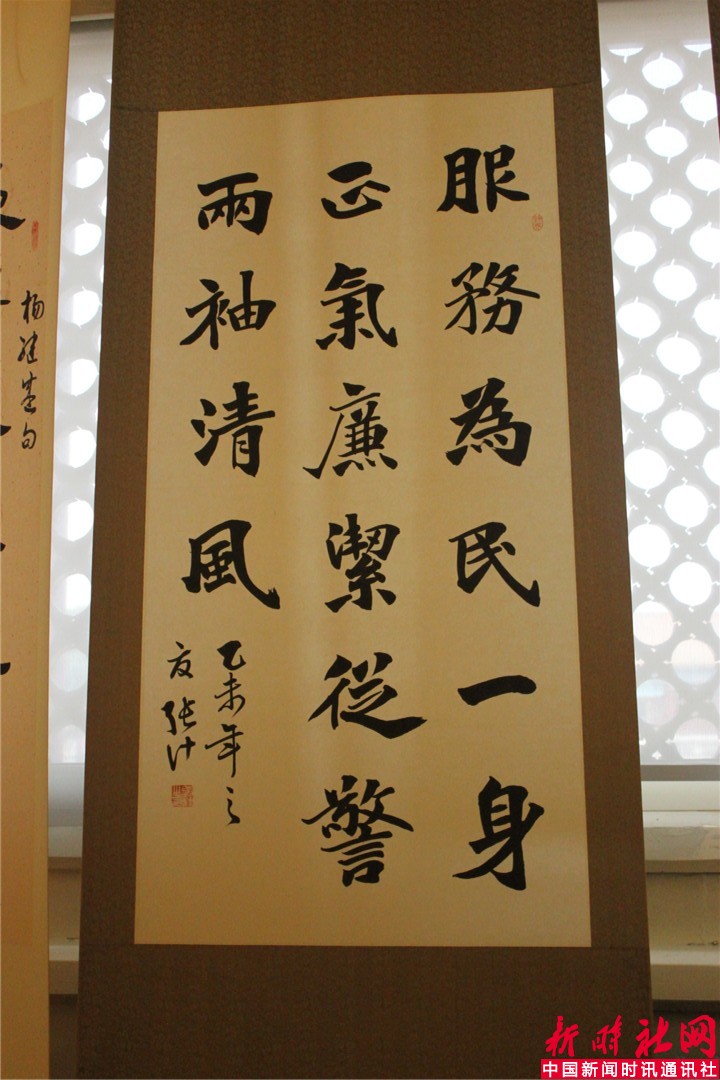 服務為民一身
正氣廉潔從警
兩袖清風
乙未年之
夏張汁
楊建英句
新时社网
中国新闻时讯通讯社